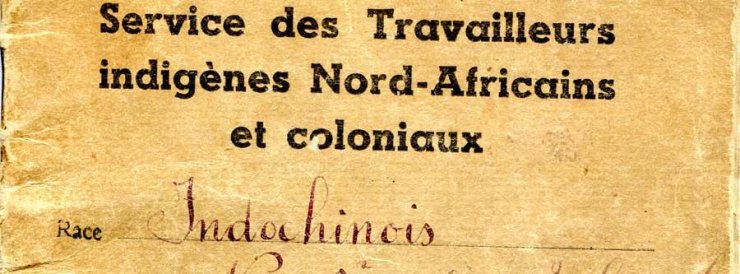 Service des Travailleurs
indigènes Nord-Africains
et coloniaux
Race Indochinois